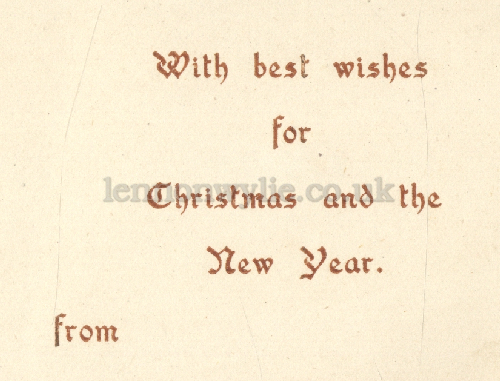 With best wishes
for
lennonwylie.co.uk
Christmas and the
New Year.
from